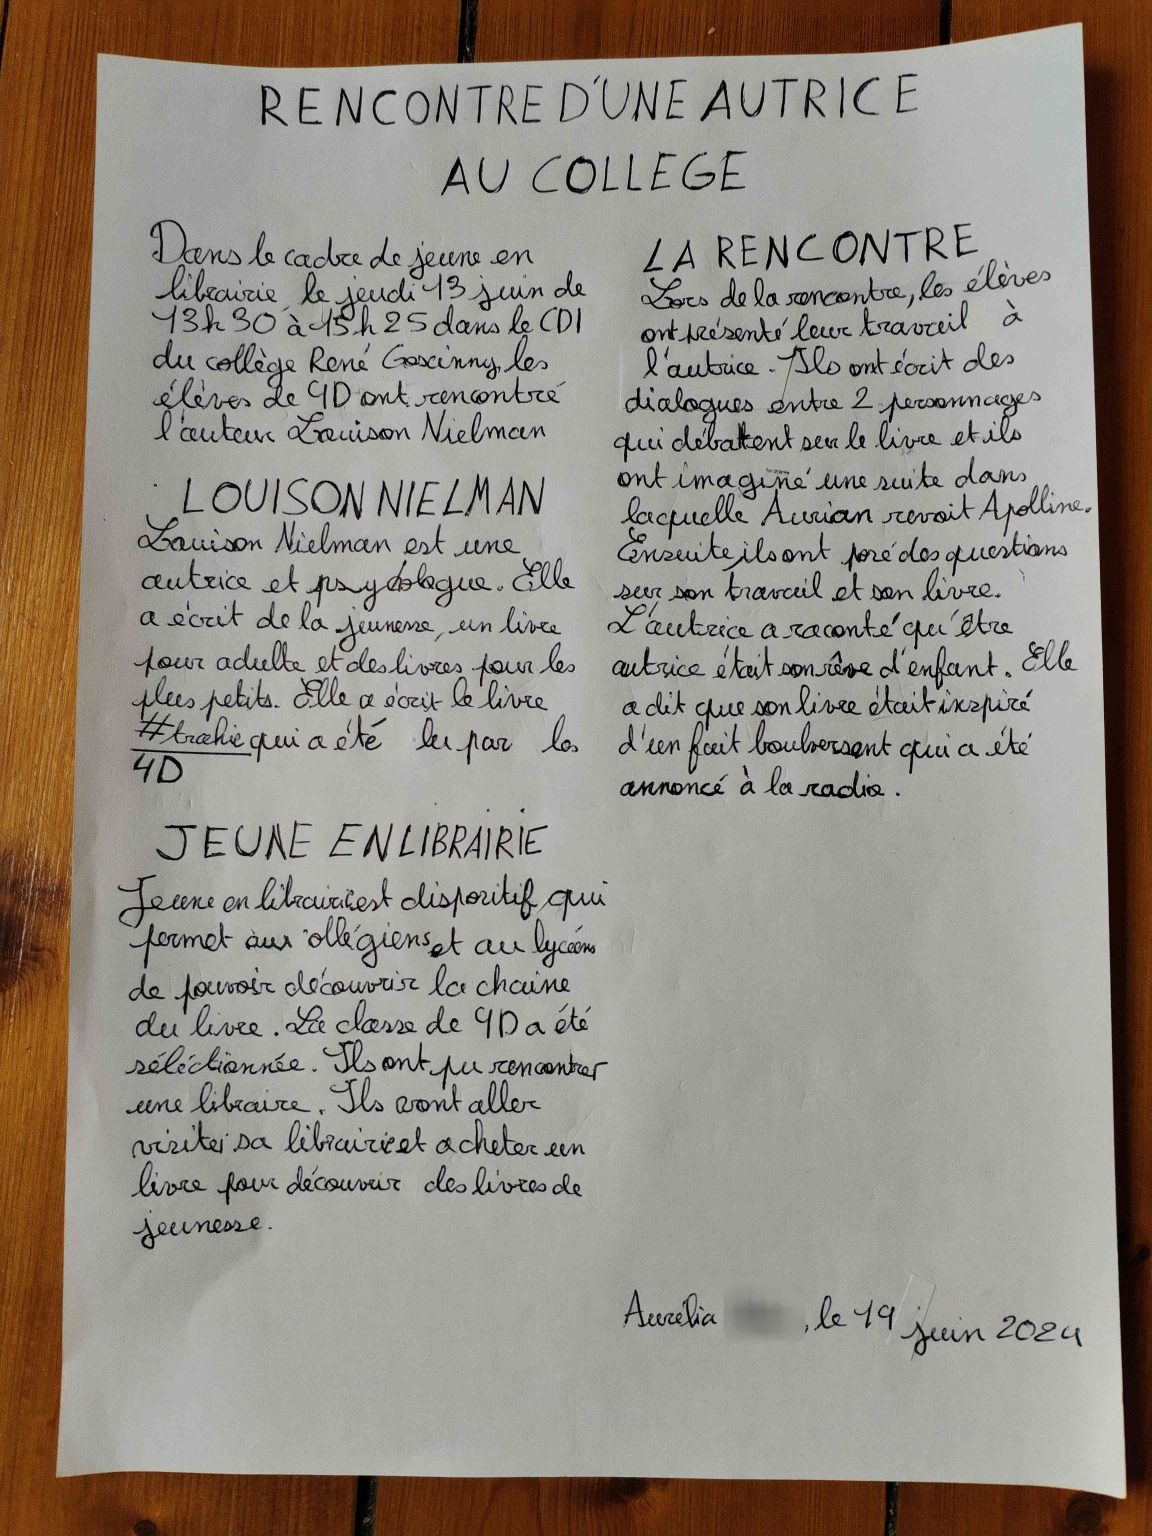 RENCONTRE D'UNE AUTRICE
AU COLLEGE
Dans le cadre de jeune en
librairie, le jeudi 13 juin de
13h30 à 15h25 dans le CDI
du collège René Goscinny, les
élèves de 4D ont rencontré
l'auteur Louison Nielman
LOUISON NIELMAN
Louison Nielman est une
autrice et psycologue. Elle
a écrit de la jeunesse, un livre
pour adulte et des livres pour les
plus petits. Elle a écrit le livre
#trahie qui a été lu par les
4D
JEUNE EN LIBRAIRIE
Jeune en librairie est dispositif qui
permet aux ollégiens et au lycéens
de pouvoir découvrir la chaine
du livre. La classe de 4D a été
séléctionnée. Ils ont pu rencontrer
une libraire. Ils vont aller
visiter sa librairie et acheter un
livre pour découvrir des livres de
jeunesse.
LA RENCONTRE
Lors de la rencontre, les élèves
ont présenté leur travail à
l'autrice. Ils ont écrit des
dialogues entre 2 personnages
qui débattent sur le livre et ils
ont imaginé une suite dans
laquelle Aurian revoit Apolline.
Ensuite, ils ont posé des questions
sur son travail et son livre.
L'autrice a raconté qu'être
autrice était son rêve d'enfant. Elle
a dit que son livre était inspiré
d'un fait boulversant qui a été
annoncé à la radio.
Aurélia , le 19 juin 2024